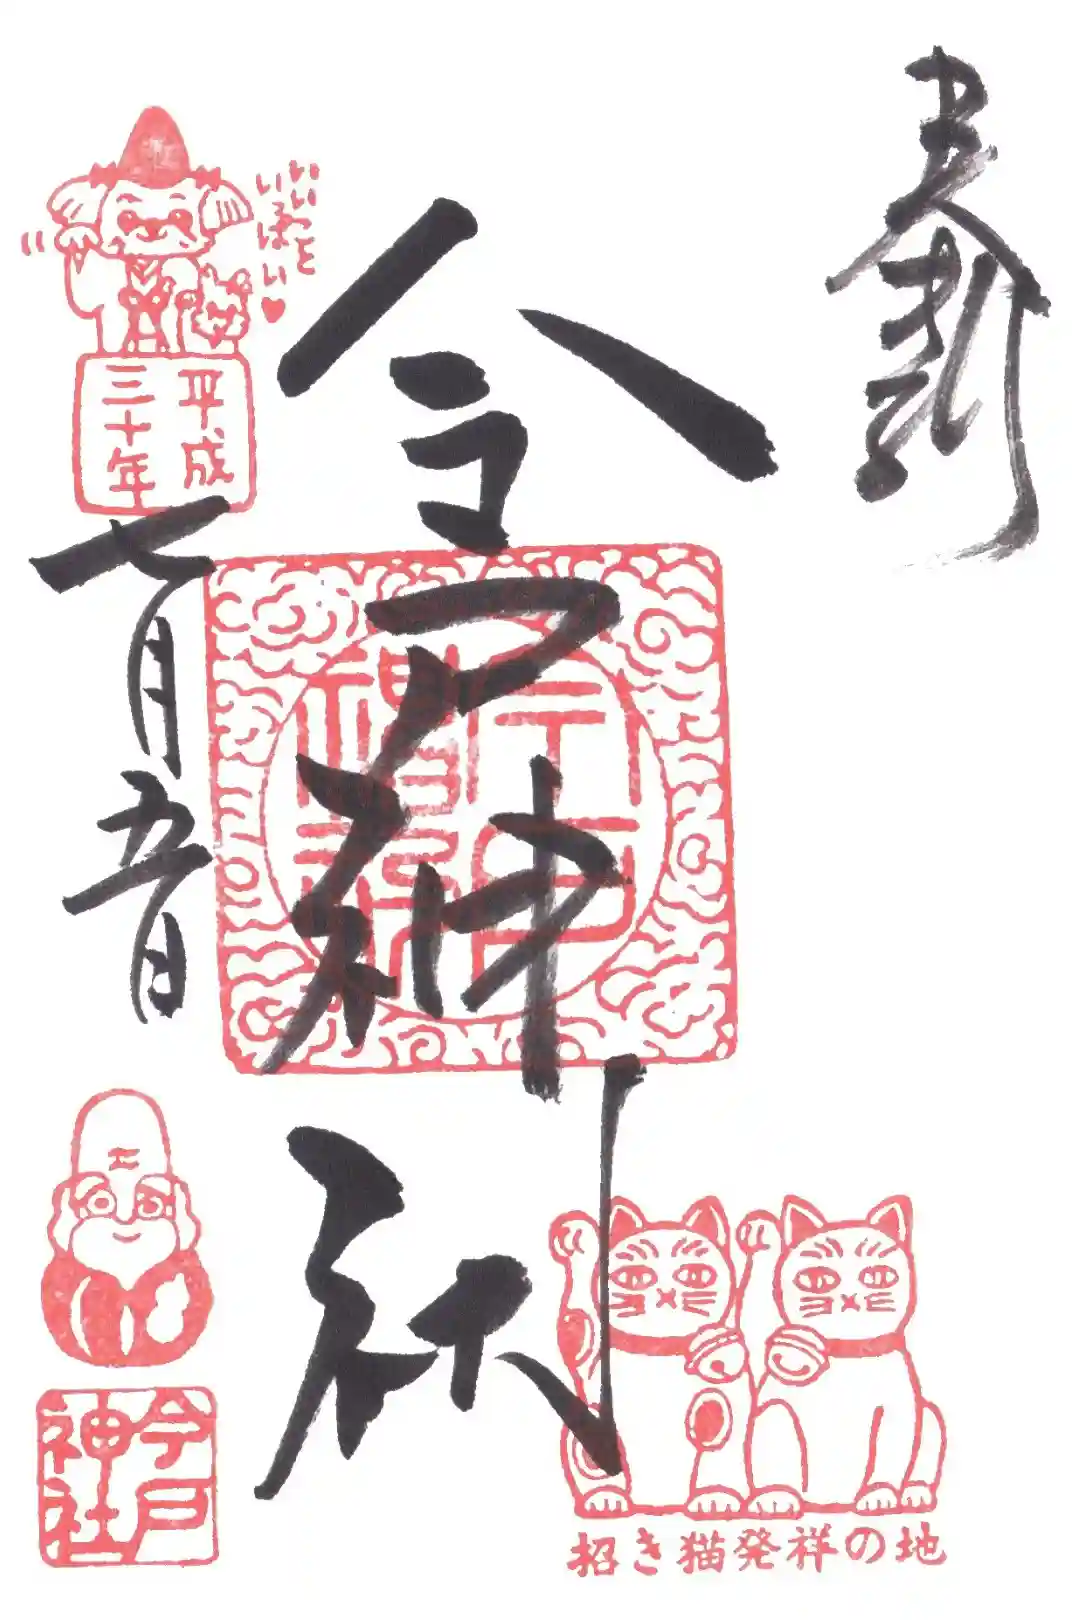 奉拝
今戸神社
いいこと
いっぱい♥
平成
三十年
七月五日
今戸
神社
招き猫発祥の地